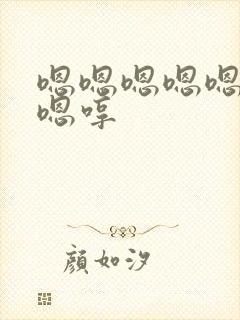 嗯嗯嗯嗯嗯
嗯啍
顏如汐